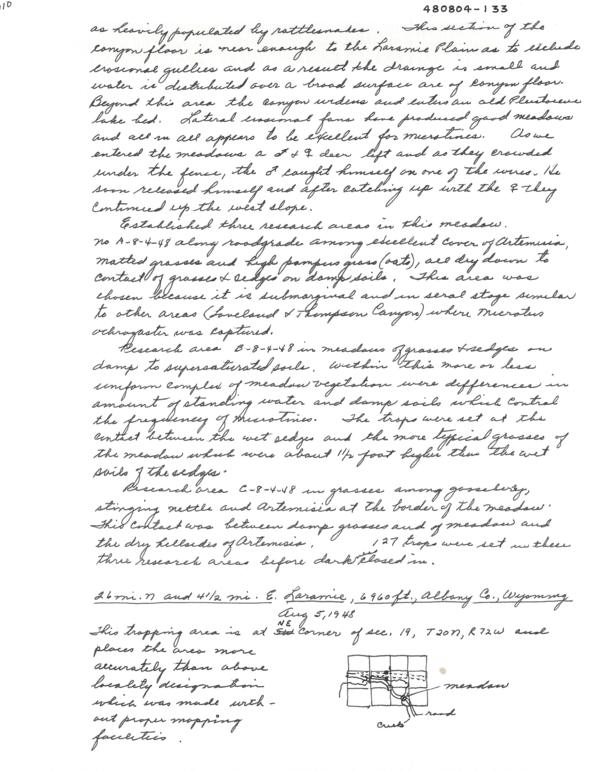 480804-133
as heavily populated by rattlesnakes. This section of the
canyon floor is near enough to the Laramie Plain as to exclude
erosional gullies and as a result the drainge is small and
water is distributed over a broad surface are of canyon floor.
Beyond this area the canyon widens and enters an old Pleistocene
lake bed. Lateral erosional fans have produced good meadows
and all in all appears to be excellent for microtines. As we
entered the meadows a ♂ & ♀ deer left and as they crowded
under the fence, the ♂ caught himself on one of the wires. He
soon released himself and after catching up with the ♀ they
continued up the west slope.
Established three research areas in this meadow.
no A-8-4-48 along roadgrade among excellent cover of Artemisia,
matted grasses and high pampus grass (oats), all dry down to
contact of grasses & sedges on damp soils. This area was
chosen because it is submarginal and in seral stage similar
to other areas (Loveland & Thompson Canyon) where Microtus
ochrogaster was captured.
Research area B-8-4-48 in meadows of grasses & sedges on
damp to supersaturated soils. Within this more or less
uniform complex of meadow vegetation were differences in
amount of standing water and damp soils which control
the frequency of microtines. The traps were set at the
contact between the wet sedges and the more typical grasses of
the meadow which were about 1½ foot higher than the wet
soils of the sedges.
Research area C-8-4-48 in grasses among gooseberry,
stinging nettle and Artemisia at the border of the meadow.
This contact was between damp grasses and of meadow and
the dry hillsides of Artemisia. 127 traps were set in these
three research areas before dark closed in.
26 mi. N and 4½ mi. E. Laramie, 6960 ft., Albany Co., Wyoming
Aug 5, 1948
NE
This trapping area is at corner of sec. 19, T20N, R72W and
places the area more
accurately than above
locality designation
which was made with-
out proper mapping
facilities.
meadow
road
Creek